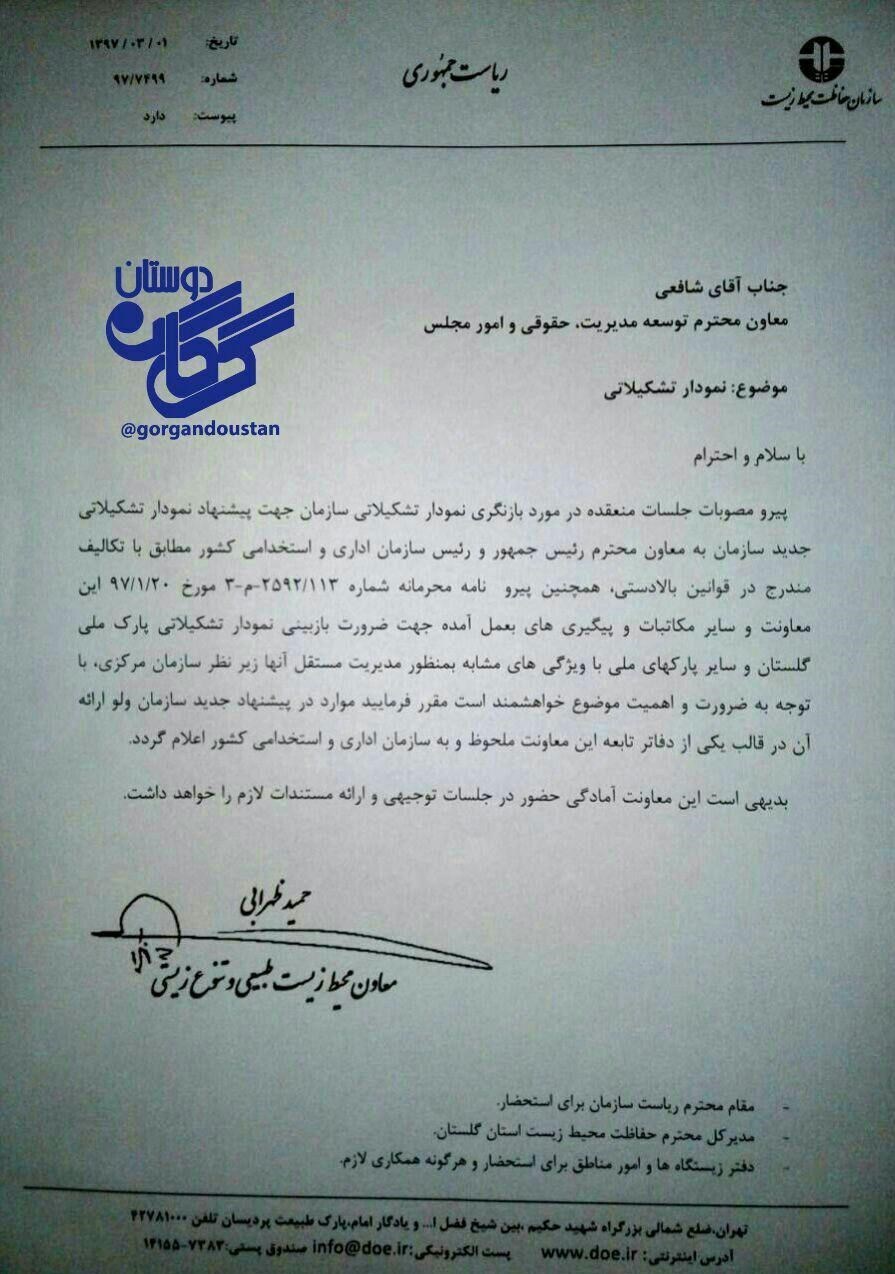 سازمان حفاظت محیط زیست
ریاست جمهوری
تاریخ: ۱۳۹۷/۰۳/۰۱
شماره: ۹۷/۷۴۹۹
پیوست: دارد
دوستان
گرگان
@gorgandoustan
جناب آقای شافعی
معاون محترم توسعه مدیریت، حقوقی و امور مجلس
موضوع: نمودار تشکیلاتی
با سلام و احترام
پیرو مصوبات جلسات منعقده در مورد بازنگری نمودار تشکیلاتی سازمان جهت پیشنهاد نمودار تشکیلاتی
جدید سازمان به معاون محترم رئیس جمهور و رئیس سازمان اداری و استخدامی کشور مطابق با تکالیف
مندرج در قوانین بالادستی، همچنین پیرو نامه محرمانه شماره ۲۵۹۲/۱۱۳-م-۳ مورخ ۹۷/۱/۲۰ این
معاونت و سایر مکاتبات و پیگیری های بعمل آمده جهت ضرورت بازبینی نمودار تشکیلاتی پارک ملی
گلستان و سایر پارکهای ملی با ویژگی های مشابه بمنظور مدیریت مستقل آنها زیر نظر سازمان مرکزی، با
توجه به ضرورت و اهمیت موضوع خواهشمند است مقرر فرمایید موارد در پیشنهاد جدید سازمان ولو ارائه
آن در قالب یکی از دفاتر تابعه این معاونت ملحوظ و به سازمان اداری و استخدامی کشور اعلام گردد.
بدیهی است این معاونت آمادگی حضور در جلسات توجیهی و ارائه مستندات لازم را خواهد داشت.
حمید ظهرابی
معاون محیط زیست طبیعی و تنوع زیستی
- مقام محترم ریاست سازمان برای استحضار.
- مدیرکل محترم حفاظت محیط زیست استان گلستان.
- دفتر زیستگاه ها و امور مناطق برای استحضار و هرگونه همکاری لازم.
تهران،ضلع شمالی بزرگراه شهید حکیم ،بین شیخ فضل ا... و یادگار امام،پارک طبیعت پردیسان تلفن ۴۲۷۸۱۰۰۰
آدرس اینترنتی: www.doe.ir پست الکترونیکی:info@doe.ir صندوق پستی:۷۳۸۳-۱۴۱۵۵